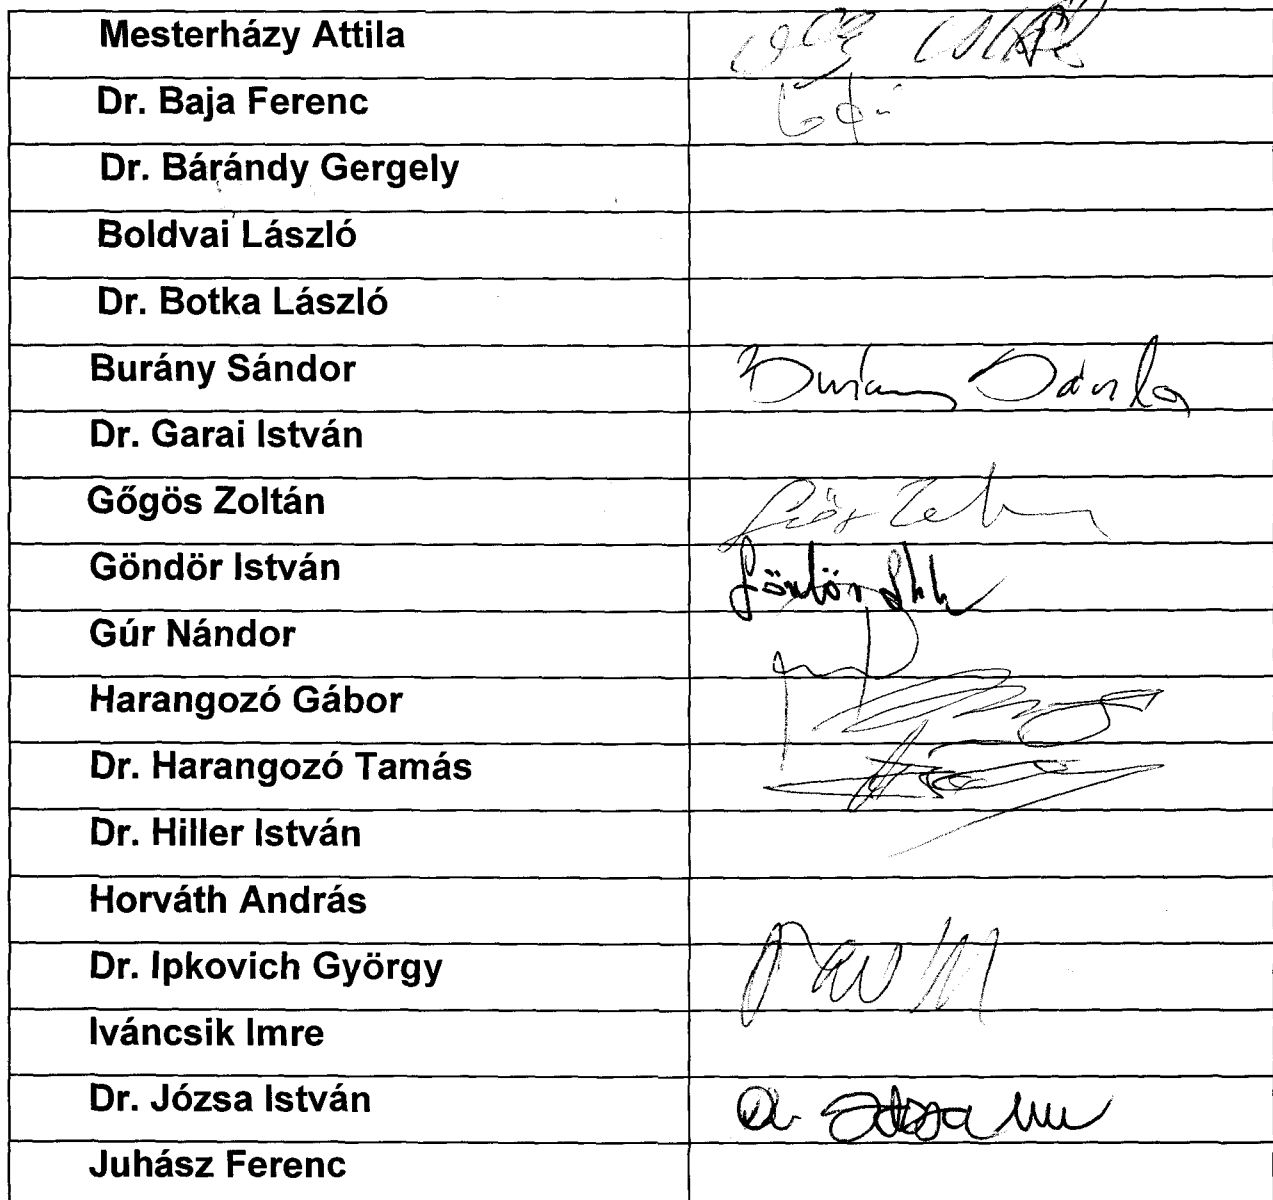 Mesterházy Attila
Dr. Baja Ferenc
Dr. Bárándy Gergely
Boldvai László
Dr. Botka László
Burány Sándor Burány Sándor
Dr. Garai István
Gőgös Zoltán
Göndör István Göndör
Gúr Nándor
Harangozó Gábor
Dr. Harangozó Tamás
Dr. Hiller István
Horváth András
Dr. Ipkovich György
Iváncsik Imre
Dr. Józsa István Dr. Józsa
Juhász Ferenc